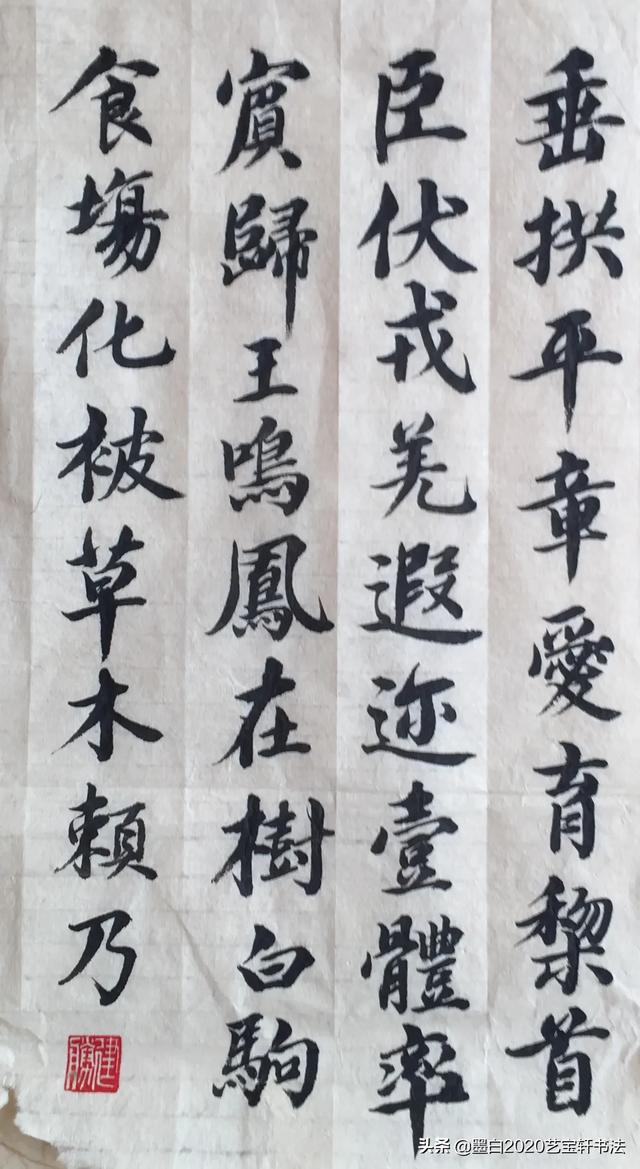 垂拱平章愛育黎首
臣伏戎羌遐迩壹體率
賓歸王鳴鳳在樹白駒
食場化被草木賴乃
建勝
头条 @墨白2020艺宝轩书法